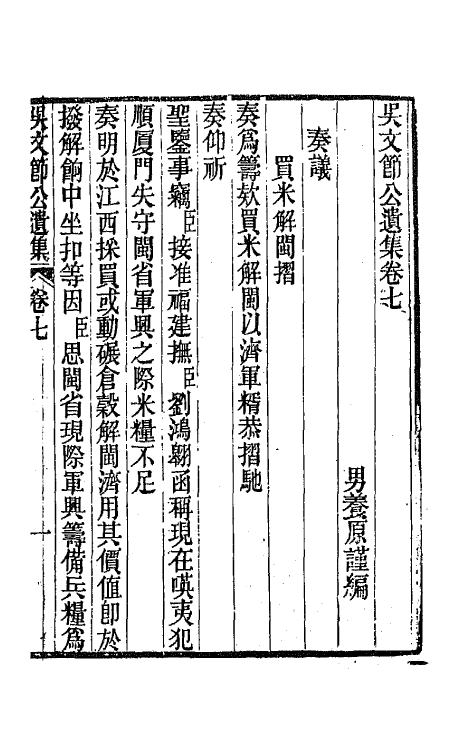 吳文節公遺集卷七
男養原謹編
奏議
買米解閩摺
奏為籌欵買米解閩以濟軍糈恭摺馳
奏仰祈
聖鑒事竊臣接准福建撫臣劉鴻翱函稱現在嘆夷犯
順厦門失守閩省軍興之際米糧不足
奏明於江西採買或動碾倉穀解閩濟用其價值卽於
撥解餉中坐扣等因臣思閩省現際軍興籌備兵糧為
吳文節公遺集 卷七 一